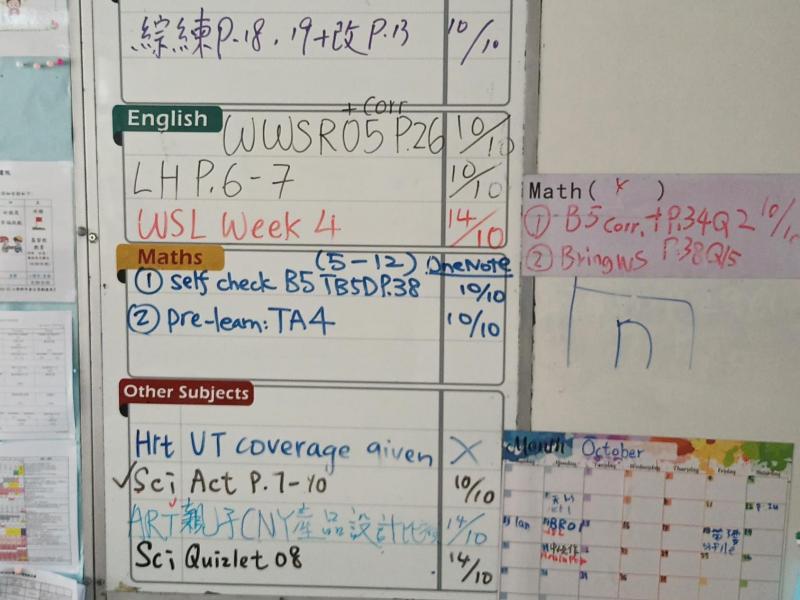 綜練P.18, 19+改P.13 10/10
English
+ Corr
WWSR05 P.26 10/10
LH P.6-7 10/10
WSL Week 4 14/10
Maths
(5-12) OneNote
① self check B5 TB5D P.38 10/10
② Pre-learn: TA4 10/10
Other Subjects
Hrt UT coverage given X
✓Sci Act P.7-10 10/10
ART 親子CNY產品設計比 14/10
Sci Quizlet 08 14/10
Math ( x )
① B5 Corr. + P.34Q2 10/10
② Bring WS P.38Q15
n
Month October